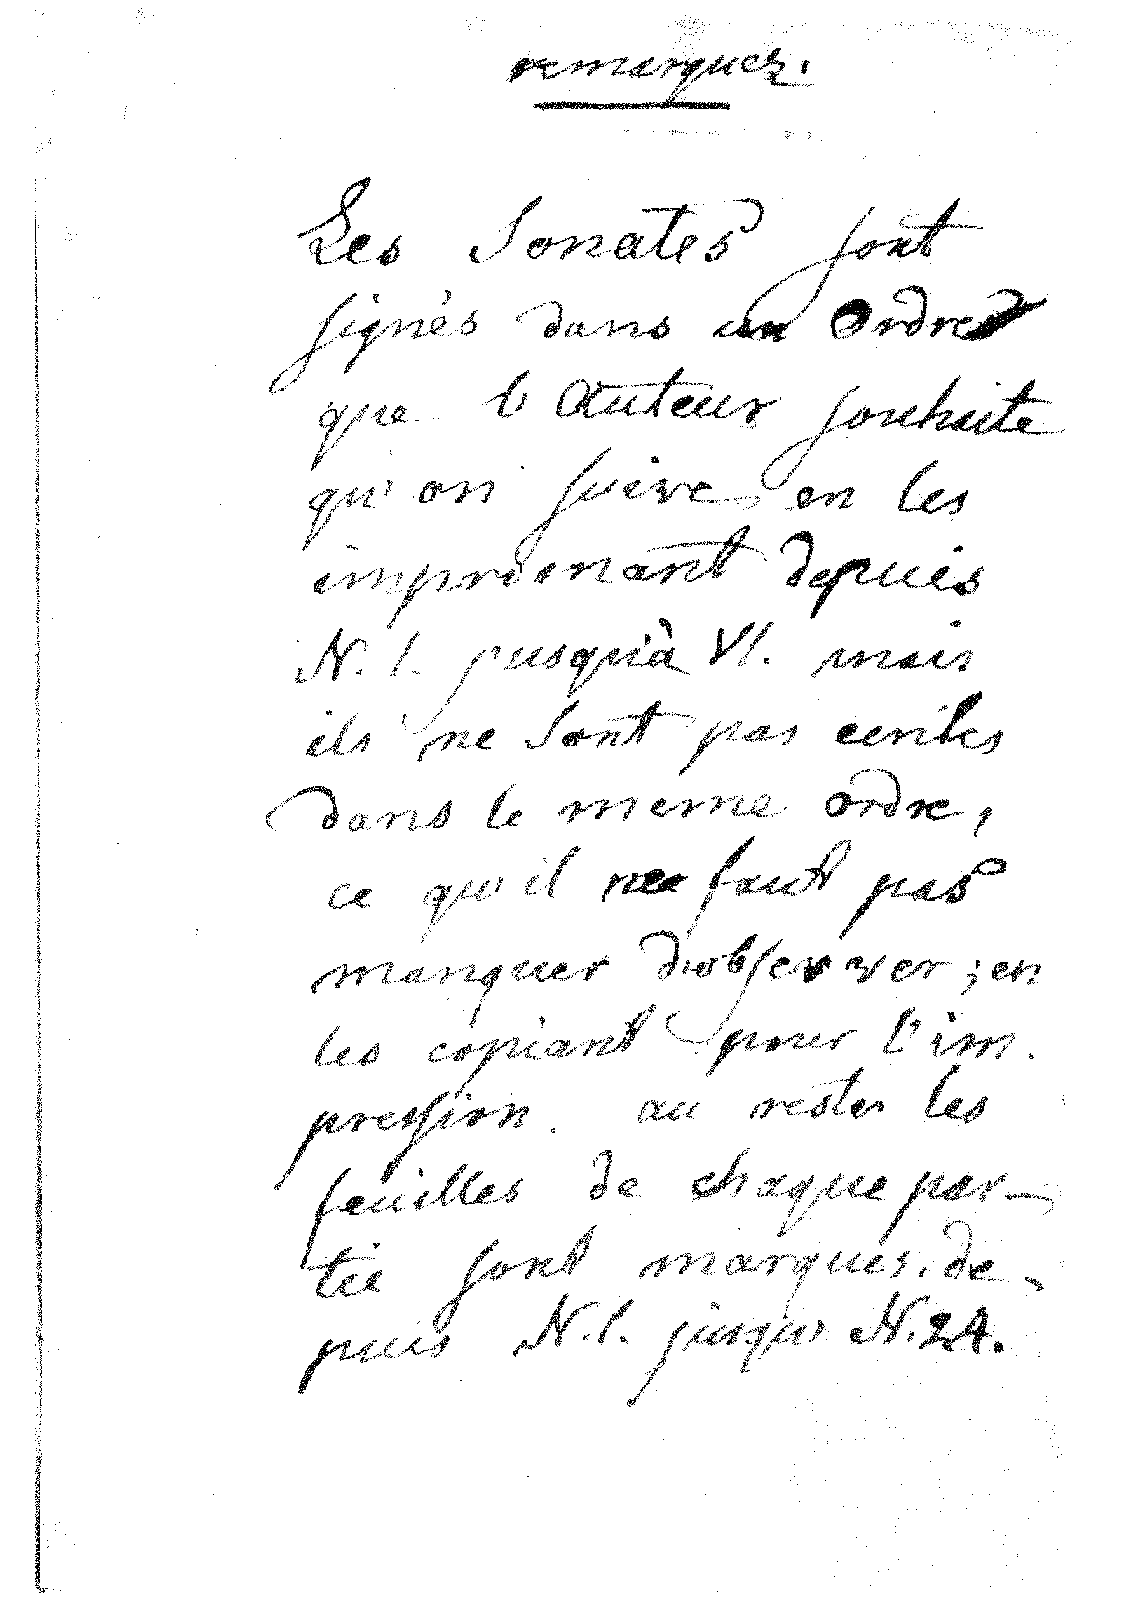 remarques.
Les Sonates sont
signés dans un Ordre
que l'Auteur souhaite
qu'on suive, en les
imprimant depuis
N. 1. jusqu'à VI. mais
ils ne sont pas ecrites
dans le meme ordre,
ce qu'il ne faut pas
manquer d'observer; en
les copiant pour l'im.
pression. au restes les
feuilles de chaque par-
tie sont marqués. de-
puis N. 1. jusqu' N. 24.